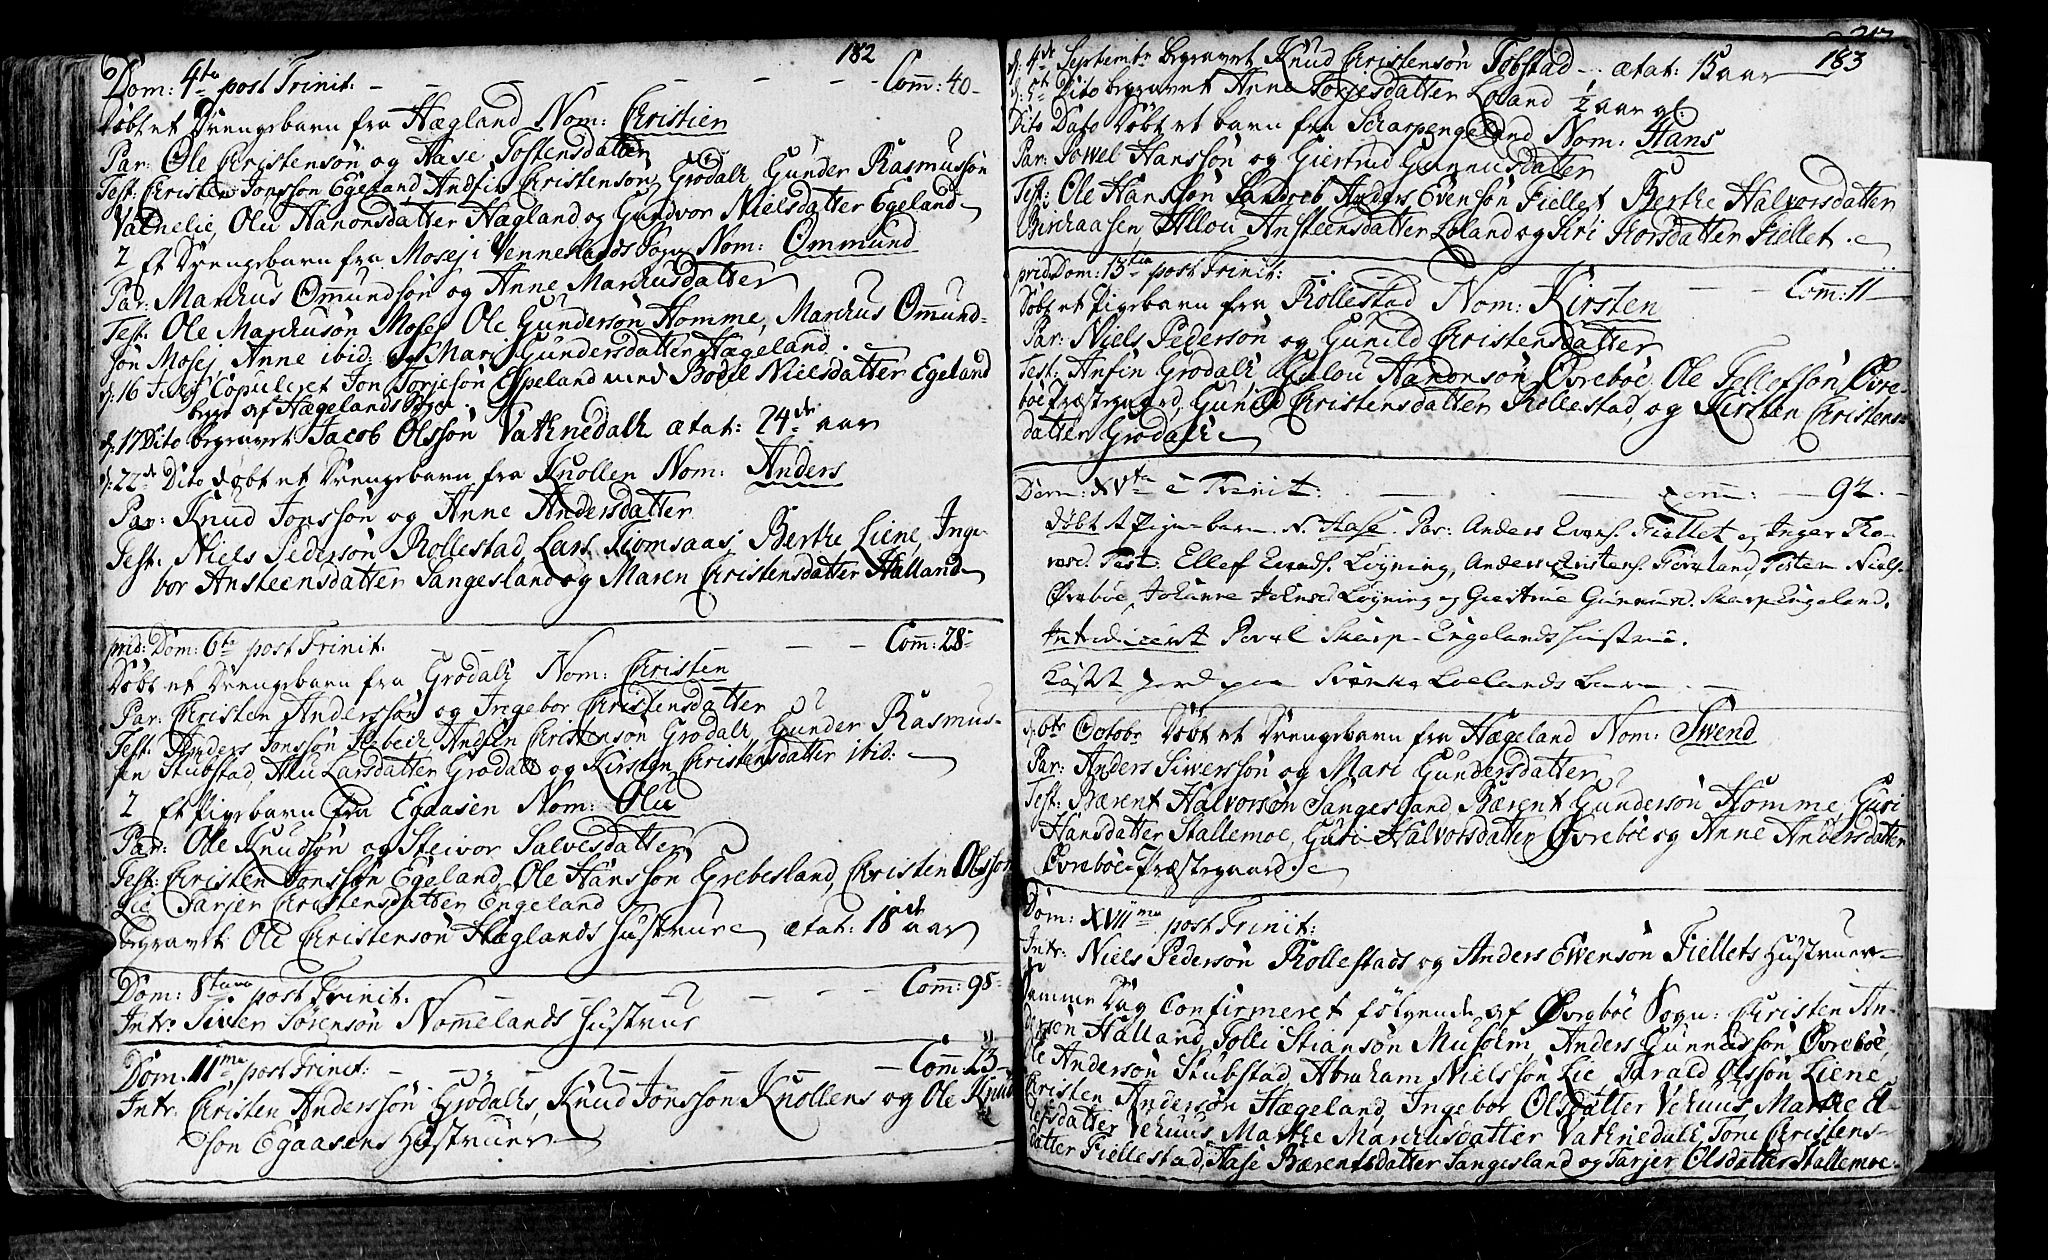 182
Dom: 4ta post Trinit: - - - - - - Com̄: 40-
Døbt et Drengebarn fra Hægland Nom: Christen
Par: Ole Christensøn og Aase Tostensdatter
Test: Christen Jonssøn Egeland, Andfin Christensøn Grødalk Gunder Rasmussøn
Vatnelie, Olu Aanonsdatter Hægland og Gundvor Nielsdatter Egeland
2 Et Drengebarn fra Mosej i Vennesland Sogn Nom: Ommund
Par: Marchus Om̄undsøn og Anne Marchusdatter
Test: Ole Marchusøn Mosej Ole Gundersøn Homme, Marchus Om̄und-
søn Mosej, Anne ibid: og Mari Gundersdatter Hægeland.
d: 16 Julij Copuleret Jon Torjesøn Espeland med Bodel Nielsdatter Egeland
begge af Hægelands Sogn.
d: 17 Dito begravet Jacob Olssøn Vatnedalk ætat: 24de aar
d: 22de Dito døbt et Drengebarn fra Knollen Nom: Anders
Par: Knud Jonssøn og Anne Andersdatter
Test: Niels Pedersøn Rollestad, Lars Tiomsaas, Berthe Liene, Inge-
bor Ansteensdatter Sangesland og Maren Christensdatter Halland
prid: Dom: 6ta post Trinit. - - - - Com̄: 28-
Døbt et Drengebarn fra Grødalk Nom: Christen
Par: Christen Anderssøn og Ingebor Christensdatter
Test: Anders Jonssøn Andfin Christensøn Grødalk, Gunder Rasmus-
søn Stubstad, Alu Larsdatter Grødalk og Kirsten Christensdatter ibid:
2 Et Pigebarn fra Egaasen Nom: Olu
Par: Ole Knudsøn og Steivor Salvesdatter
Test: Christen Jonssøn Egeland, Ole Hanssøn Grebesland, Christen Olssøn
Lie Tarjer Christensdatter Engeland
begravet Ole Christensøn Hæglands Hustrue ætat: 18 aar
Dom: 8tava post Trinit. - - - - Com̄: 98-
Intr: Siver Sørensøn Nom̄elands Hustrue
Dom: 11ma post Trinit: - - - - Com̄ 23-
Intr: Christen Anderssøn Grødalks, Knud Jonssøn Knollens og Ole Knud
søn Egaasens Hustruer
183
d: 4de Septembr begravet Knud Christensøn Tobstad - ætat: 15 aar
d: 5te Dito begravet Anne Torjesdatter Loland ½ aar gl.
Dito Dato Døbt et barn fra Scharpengeland Nom: Hans
Par: Powel Hanssøn og Giertrud Gunnusdatter
Test: Ole Hanssøn Anders Evensøn Fiellet Berthe Halvorsdatter
Birchaasen, Allou Ansteensdatter Loland og Siri Thorsdatter Fiellet.
prid: Dom: 13tia post Trinit: - - Com̄: 11
Døbt et Pigebarn fra Rollestad Nom: Kirsten
Par: Niels Pedersøn og Gunild Christensdatter
Test: Anfin Grødalk Gulou Aanonsøn Øvrebøe, Ole Tellefsøn Øvre-
bøe Præstegaard, Gunild Christensdatter Rollestad, og Kirsten Christens-
datter Grødalk
Dom: XVta à Trinit: - - - - 92.
døbt et Pigebarn N. Aase. Par: Anders Evens. Fiellet og Inger Tho-
resd. Test: Ellef Løyning, Anders Christens. Torsten Niels.
Øvrebøe, Johanne Løyning og Giertrue Gunnusd. Skarpengeland.
Introduceret Povel Skarp-Engelands Hustrue.
kastet Jord paa Lolands barn -
d: 6te Octobr Døbt et Drengebarn fra Hægeland Nom: Swend
Par: Anders Siwerssøn og Mari Gundersdatter
Test: Bærent Halvorsøn Sangesland, Bærent Gundersøn Homme, Guri
Hansdatter Stallemoe, Guri Halvorsdatter Øvrebøe og Anne Andersdatter
Øvrebøe-Præstegaard.
Dom: XVIIma post Trinit:
Intr: Niels Pedersøn Rollestads og Anders Ewensøn Fiellets Hustruer
Samme Dag Confirmeret følgende af Øvrebøe Sogn: Christen An-
dersøn Halland, Tolli Stiansøn Musolm, Anders Gunnudsøn Øvrebøe,
Ole Andersøn Stubstad, Abraham Nielssøn Lie, Tarald Olssøn Liene,
Christen Andersøn Hægeland, Ingebor Olsdatter Vehuus, Marthe El-
lefsdatter Vehuus, Marthe Marchusdatter Vatnedalk, Tone Christens-
datter Fiellestad, Aase Bærentsdatter Sangesland og Tarjer Olsdatter Stallemoe.